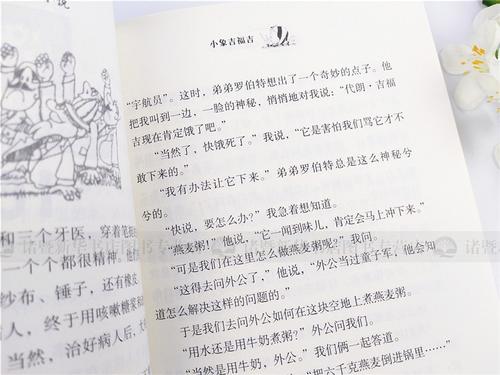 小说
和三个牙医，穿着笔挺
一个个都很精神。
纱布、锤子，还有橡皮
人，终于用咳嗽糖浆
当然，治好病人后，大
小象吉福吉
“宇航员”。这时，弟弟罗伯特想出了一个奇妙的点子。他
把我叫到一边，一脸的神秘，悄悄地对我说：“代朗·吉福
吉现在肯定饿了吧。”
“当然了，快饿死了。”我说，“它是害怕我们骂它才不
敢下来的。”
“我有办法让它下来。”弟弟罗伯特总是这么神秘兮
兮的。
“快说，要怎么办？”我急着想知道。
“燕麦粥！”他说，“它一闻到味儿，肯定会马上冲下来。”
“可是我们在这里怎么做燕麦粥呢？”我问。
“这得去问外公了，”他说，“外公当过童子军，他会知
道怎么解决这样的问题的。”
于是我们去问外公如何在这块空地上煮燕麦粥。
“用水还是用牛奶煮粥？”外公问我们。
“当然是用牛奶，外公。”我们俩一起答道。
“把六千克燕麦倒进锅里……”